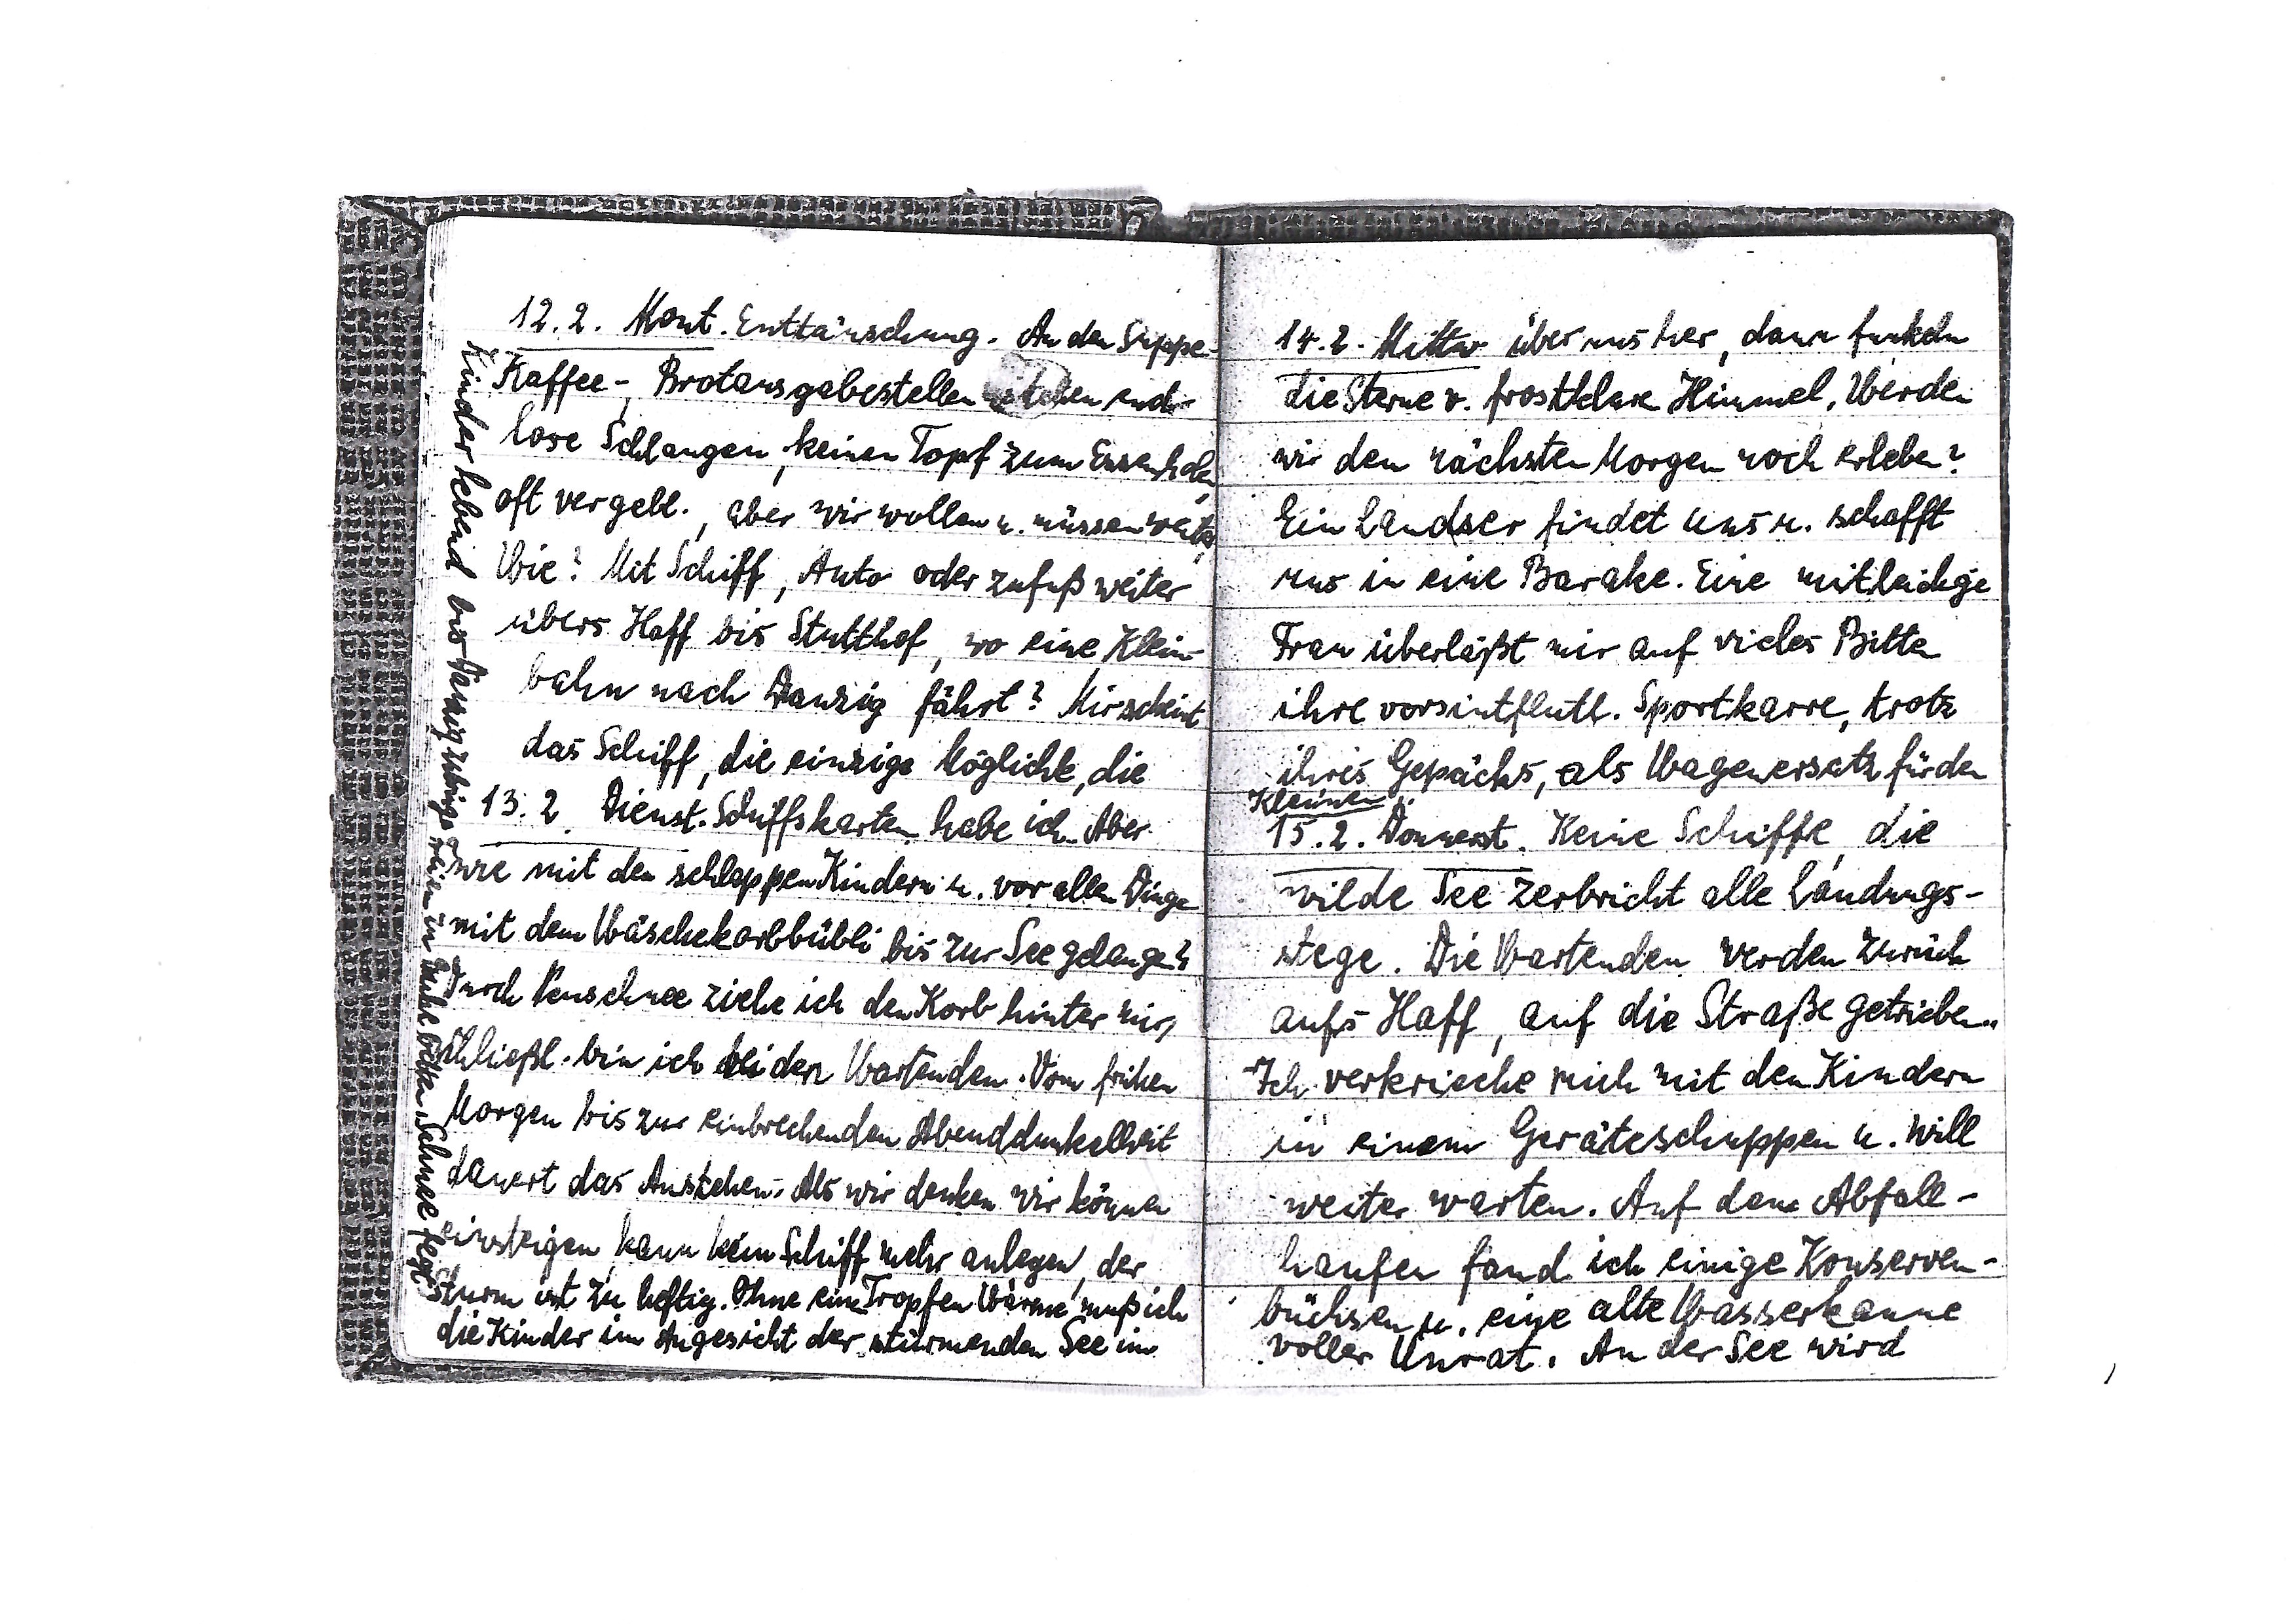 12.2. Mont. Enttäuschung. An den Suppe-
Kaffee-, Brotausgabestellen stehen end-
lose Schlangen, keinen Topf zum Essenholen,
oft vergebl., aber wir wollen u. müssen weiter,
Wie? Mit Schiff, Auto oder zufuß weiter
übers Haff bis Stutthof, wo eine Klein-
bahn nach Danzig fährt? Mir scheint
das Schiff, die einzige Möglichk, die
Kinder lebend bis Danzig zu bringen
13.2. Dienst. Schiffskarten habe ich. Aber
wie mit den schlappen Kindern u. vor allen Dinge
mit dem Wäschekorbbübli bis zur See gelangen?
Durch Neuschnee ziehe ich den Korb hinter mir,
schließl. bin ich bei den Wartenden. Vom frühen
Morgen bis zur einbrechenden Abenddunkelheit
dauert das Anstehen. Als wir denken wir können
einsteigen, kann kein Schiff mehr anlegen, der
Sturm ist zu heftig. Ohne ein Tropfen Wärme muß ich
die Kinder im Angesicht der stürmenden See im
Schnee
14.2. Mittw über uns her, dann funkeln
die Sterne v. frostklare Himmel. Werden
wir den nächsten Morgen noch erleben?
Ein Landser findet uns u. schafft
uns in eine Barake. Eine mitleidige
Frau überläßt mir auf vieles Bitten
ihre vorsintflutl. Sportkarre, trotz
ihres Gepäcks, als Wagenersatz für den
Kleinen.
15.2. Donnerst. Keine Schiffe, die
wilde See zerbricht alle Landungs-
stege. Die Wartenden werden zurück
aufs Haff, auf die Straße getrieben.
Ich verkrieche mich mit den Kindern
in einem Geräteschuppen u. will
weiter warten. Auf dem Abfall-
haufen fand ich einige Konserven-
büchsen u. eine alte Wasserkanne
voller Unrat. An der See wird